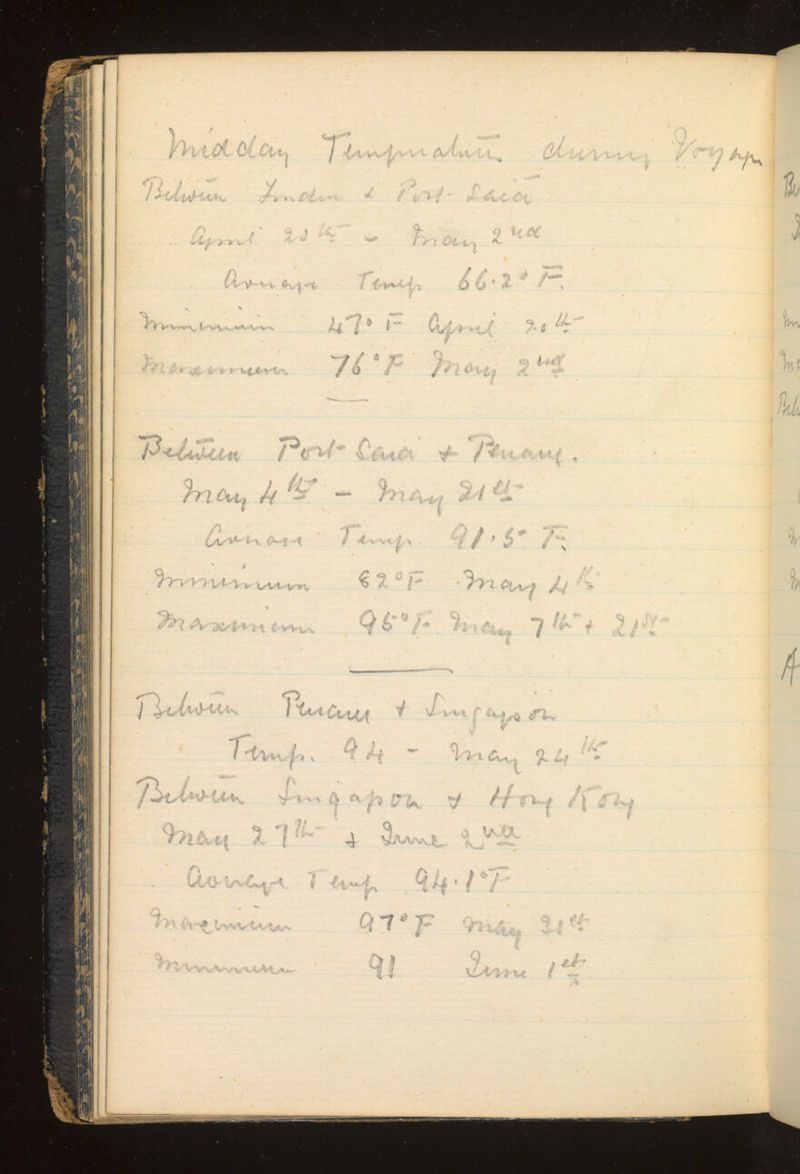 Midday Temperature during Voyage
Between London & Port Said
April 20th - May 2nd
Average Temp 66.2° F.
Minimum 47° F April 20th
Maximum 76° F May 2nd
Between Port Said & Penang.
May 4th - May 21st
Average Temp. 91.5 F.
Minimum 82°F May 4th
Maximum 95°F May 7th & 21st
Between Penang & Singapore
Temp. 94 - May 24th
Between Singapore & Hong Kong
May 27th & June 2nd
Average Temp 94.1°F
Maximum 97°F May 31st
Minimum 91 June 1st